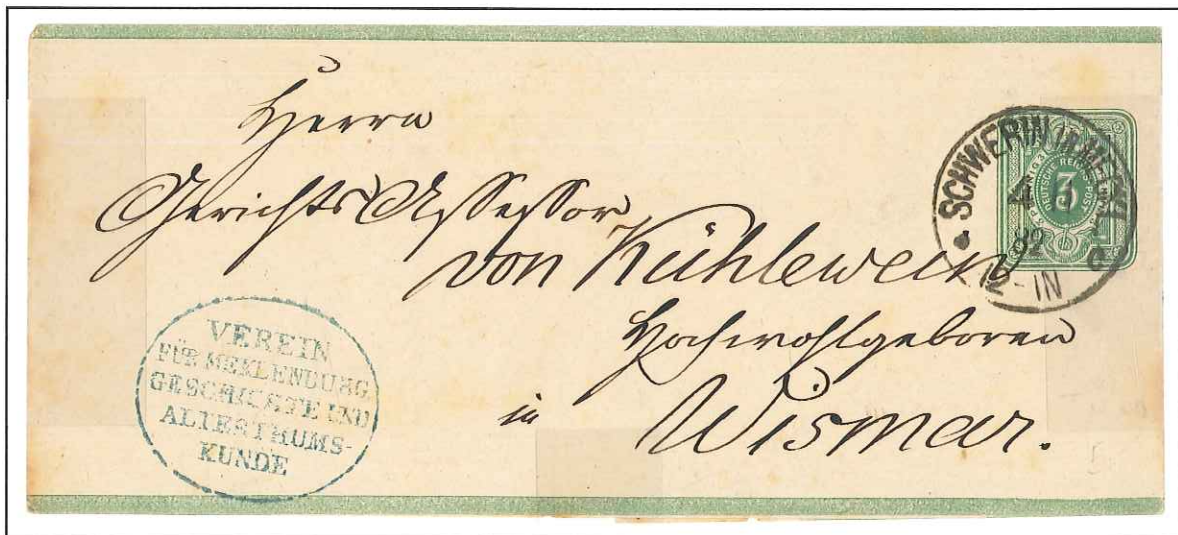 Herrn
Gerichts Assessor
von Kühlewein
Hochwohlgeboren
in Wismar.
VEREIN
FÜR MEKLENBURG.
GESCHICHTE UND
ALTERTHUMS-
KUNDE
SCHWERIN IN MECKL.
4
92
12-1N
3
DEUTSCHE REICHS-POST